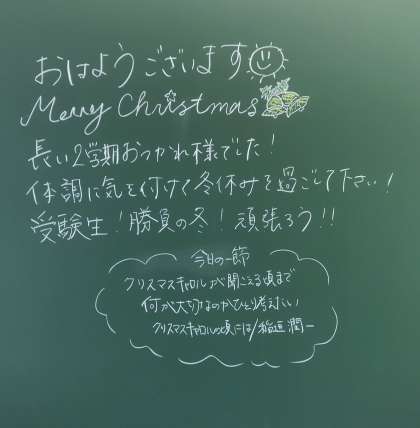 おはようございます
Merry Christmas
長い2学期おつかれ様でした!
体調に気を付けて冬休みを過ごして下さい!
受験生!勝負の冬!頑張ろう!!
今日の一節
クリスマスキャロルが聞こえる頃まで
何が大切なのかひとり考えたい
クリスマスキャロルの頃には/稲垣潤一